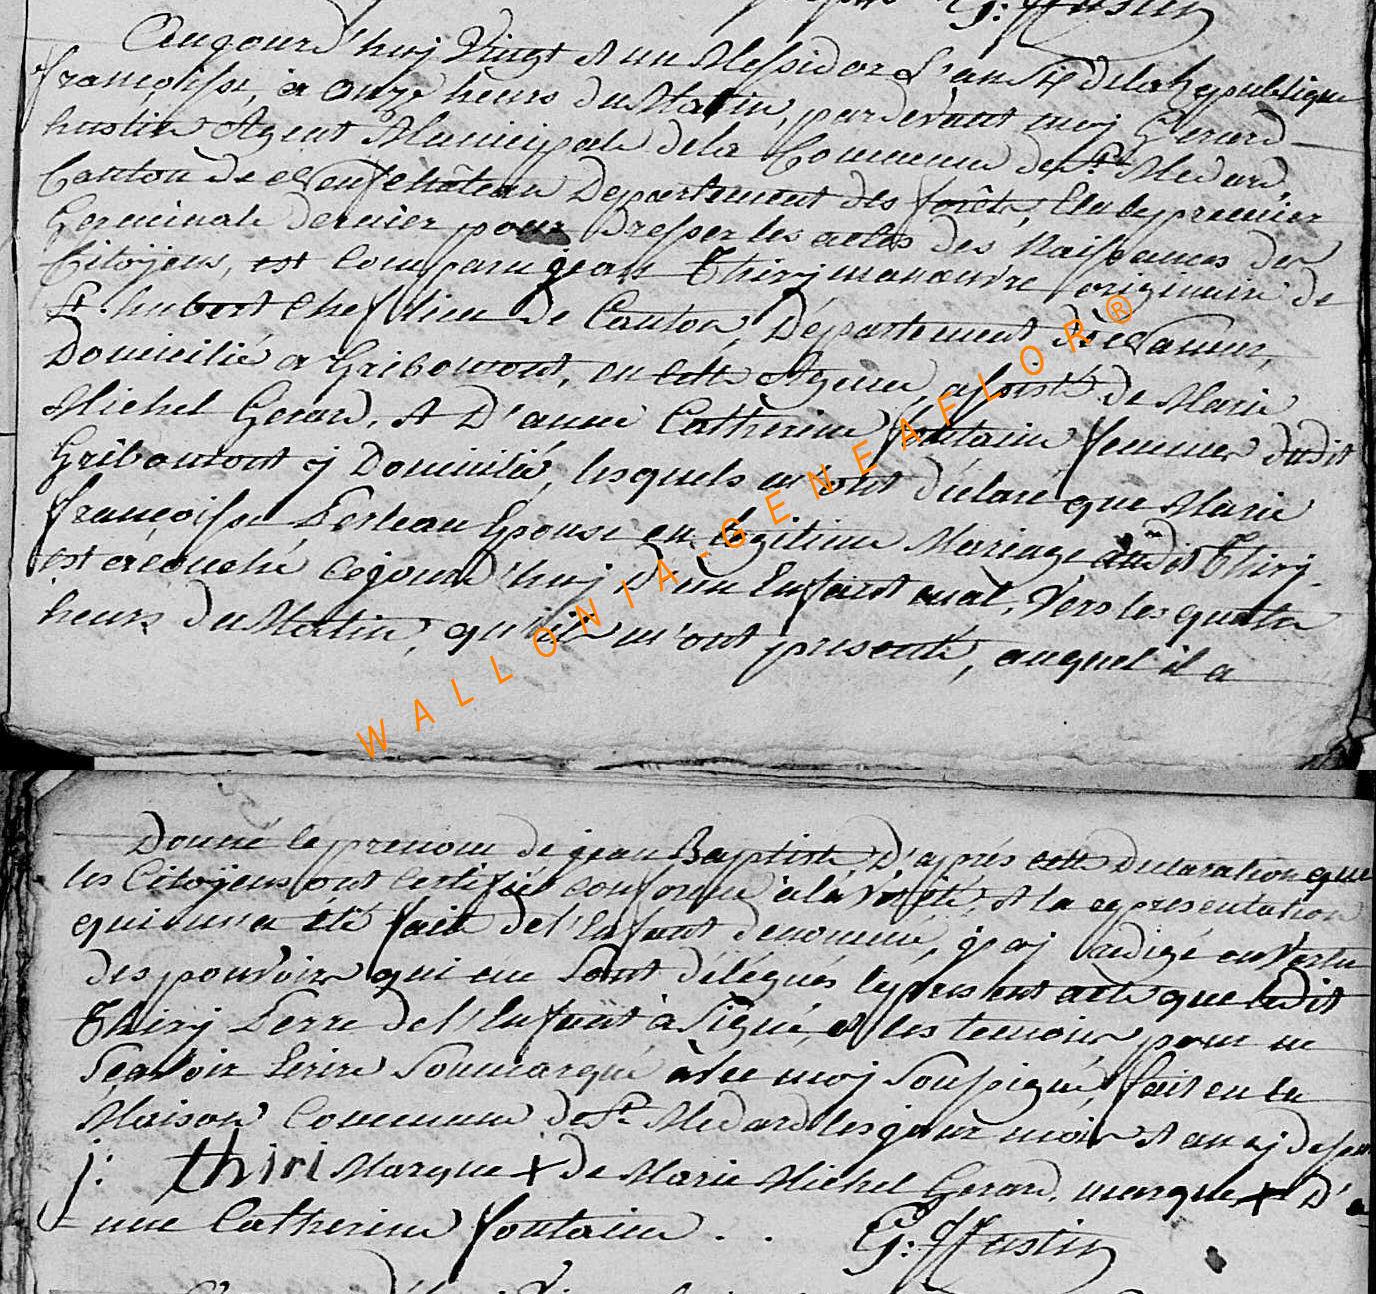 G: Hustin
Aujourd'huj Vingt et un Messidor L'an Six dela Republique
françoisse, à onze heurs du Matin, pardevant moj Gerard
hustin Agent Municipale dela Commune de St. Medard,
Canton de Neufchâteau Departement des forêts, Elu le premier
Germinale dernier pour Dresser les actes des Naissances des
Citoÿens, est Comparu jean Thirj manœuvre originaire de
St. hubert Chef lieu de Canton, Département de
Domicilié à Gribomont, en cette Agence, assisté de Marie
Michel Gerard, et D'anne Catherine fontaine femmes dudit
Gribomont j Domicilié, lesquels m'ont déclaré que Marie
françoisse Perleau Epouse en legitime Mariage dudit Thirj
est acouché cejourd'huj d'un Enfant mâl, Vers les quatre
heurs du Matin, qu'il m'ont presenté, auquel il a
Donné le prenom de jean Baptiste D'aprés cette Declaration que
les Citoÿens ont Certifié conforme à la vérité et la representation
qui m'a été faite de l'Enfant denommé, j'aj Redigé en Vertu
des pouvoirs qui me sont délégués le present acte que ledit
Thirj Perre de l'Enfant à Signé, et les temoins pour ne
Seavoir Ecrire Sousmarqué avec moj Soussigné, fait en la
Maison Commune de St. Medard les jour mois et an cj dessus
j: thiri Marque + de Marie Michel Gerard. marque + D'a-
nne Catherine fontaine . .
G: Hustin
WALLONIA-GENEAFLOR®